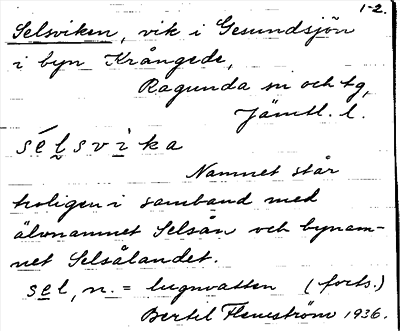 1-2.
Selsviken, vik i Gesundsjön
i byn Krångede,
Ragunda sn och tg,
Jämtl. l.
sé̀lsvika
Namnet står
troligen i samband med
älvnamnet Selsån och bynam-
net Selsålandet.
sel, n. = lugnvatten (forts.)
Bertil Flemström 1936.